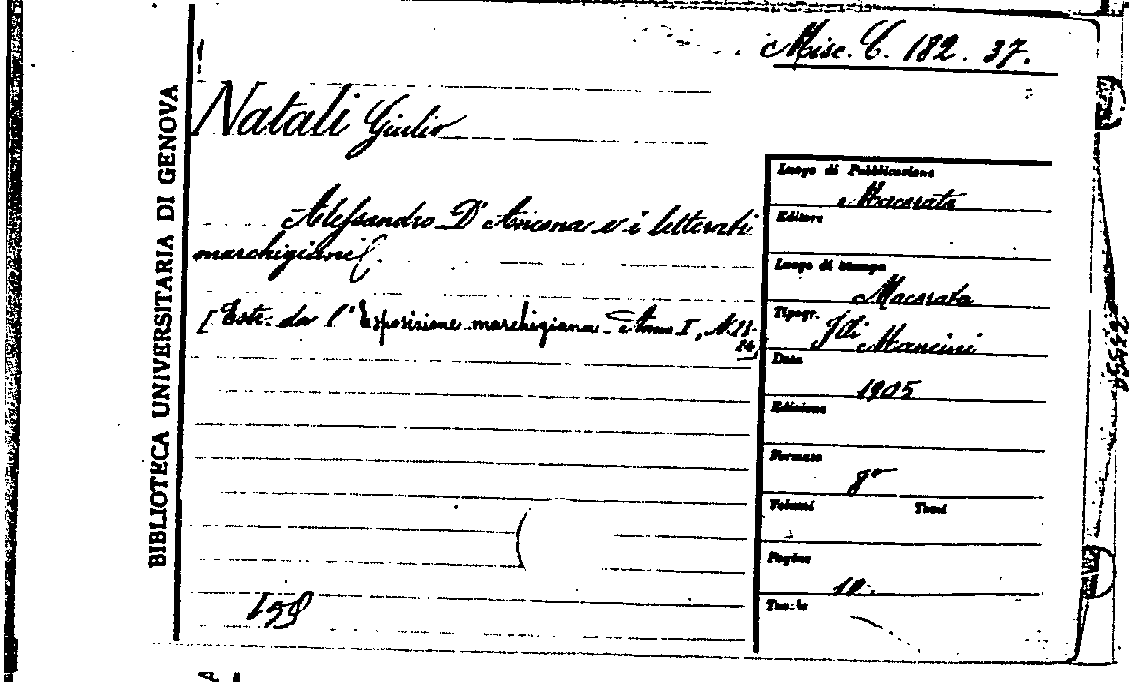 Misc. C. 182. 37.
BIBLIOTECA UNIVERSITARIA DI GENOVA
Natali Giulio
Alessandro D'Ancona e i letterati
marchigiani.
[Estr. da l'Esposizione marchigiana. Anno I, N. 23-
24]
Luogo di Pubblicazione
Macerata
Editore
Luogo di stampa
Macerata
Tipogr. Flli
Mancini
Data
1905
Edizione
Formato
8º
Volumi Tomi
Pagine
Tavole